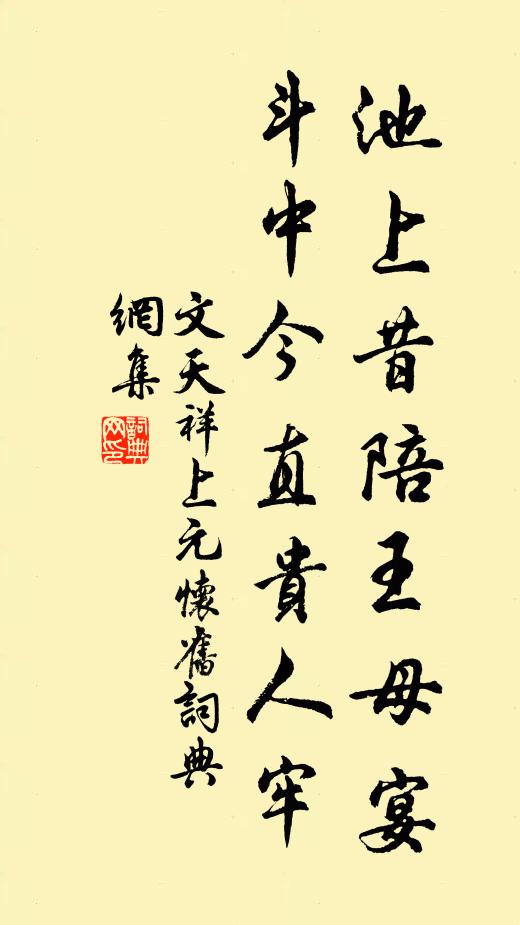 池上昔陪王母宴
斗中今直貴人牢
文天祥上元懷舊詞典
網集
詞典
网印